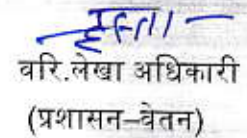 वरि.लेखा अधिकारी
(प्रशासन–वेतन)